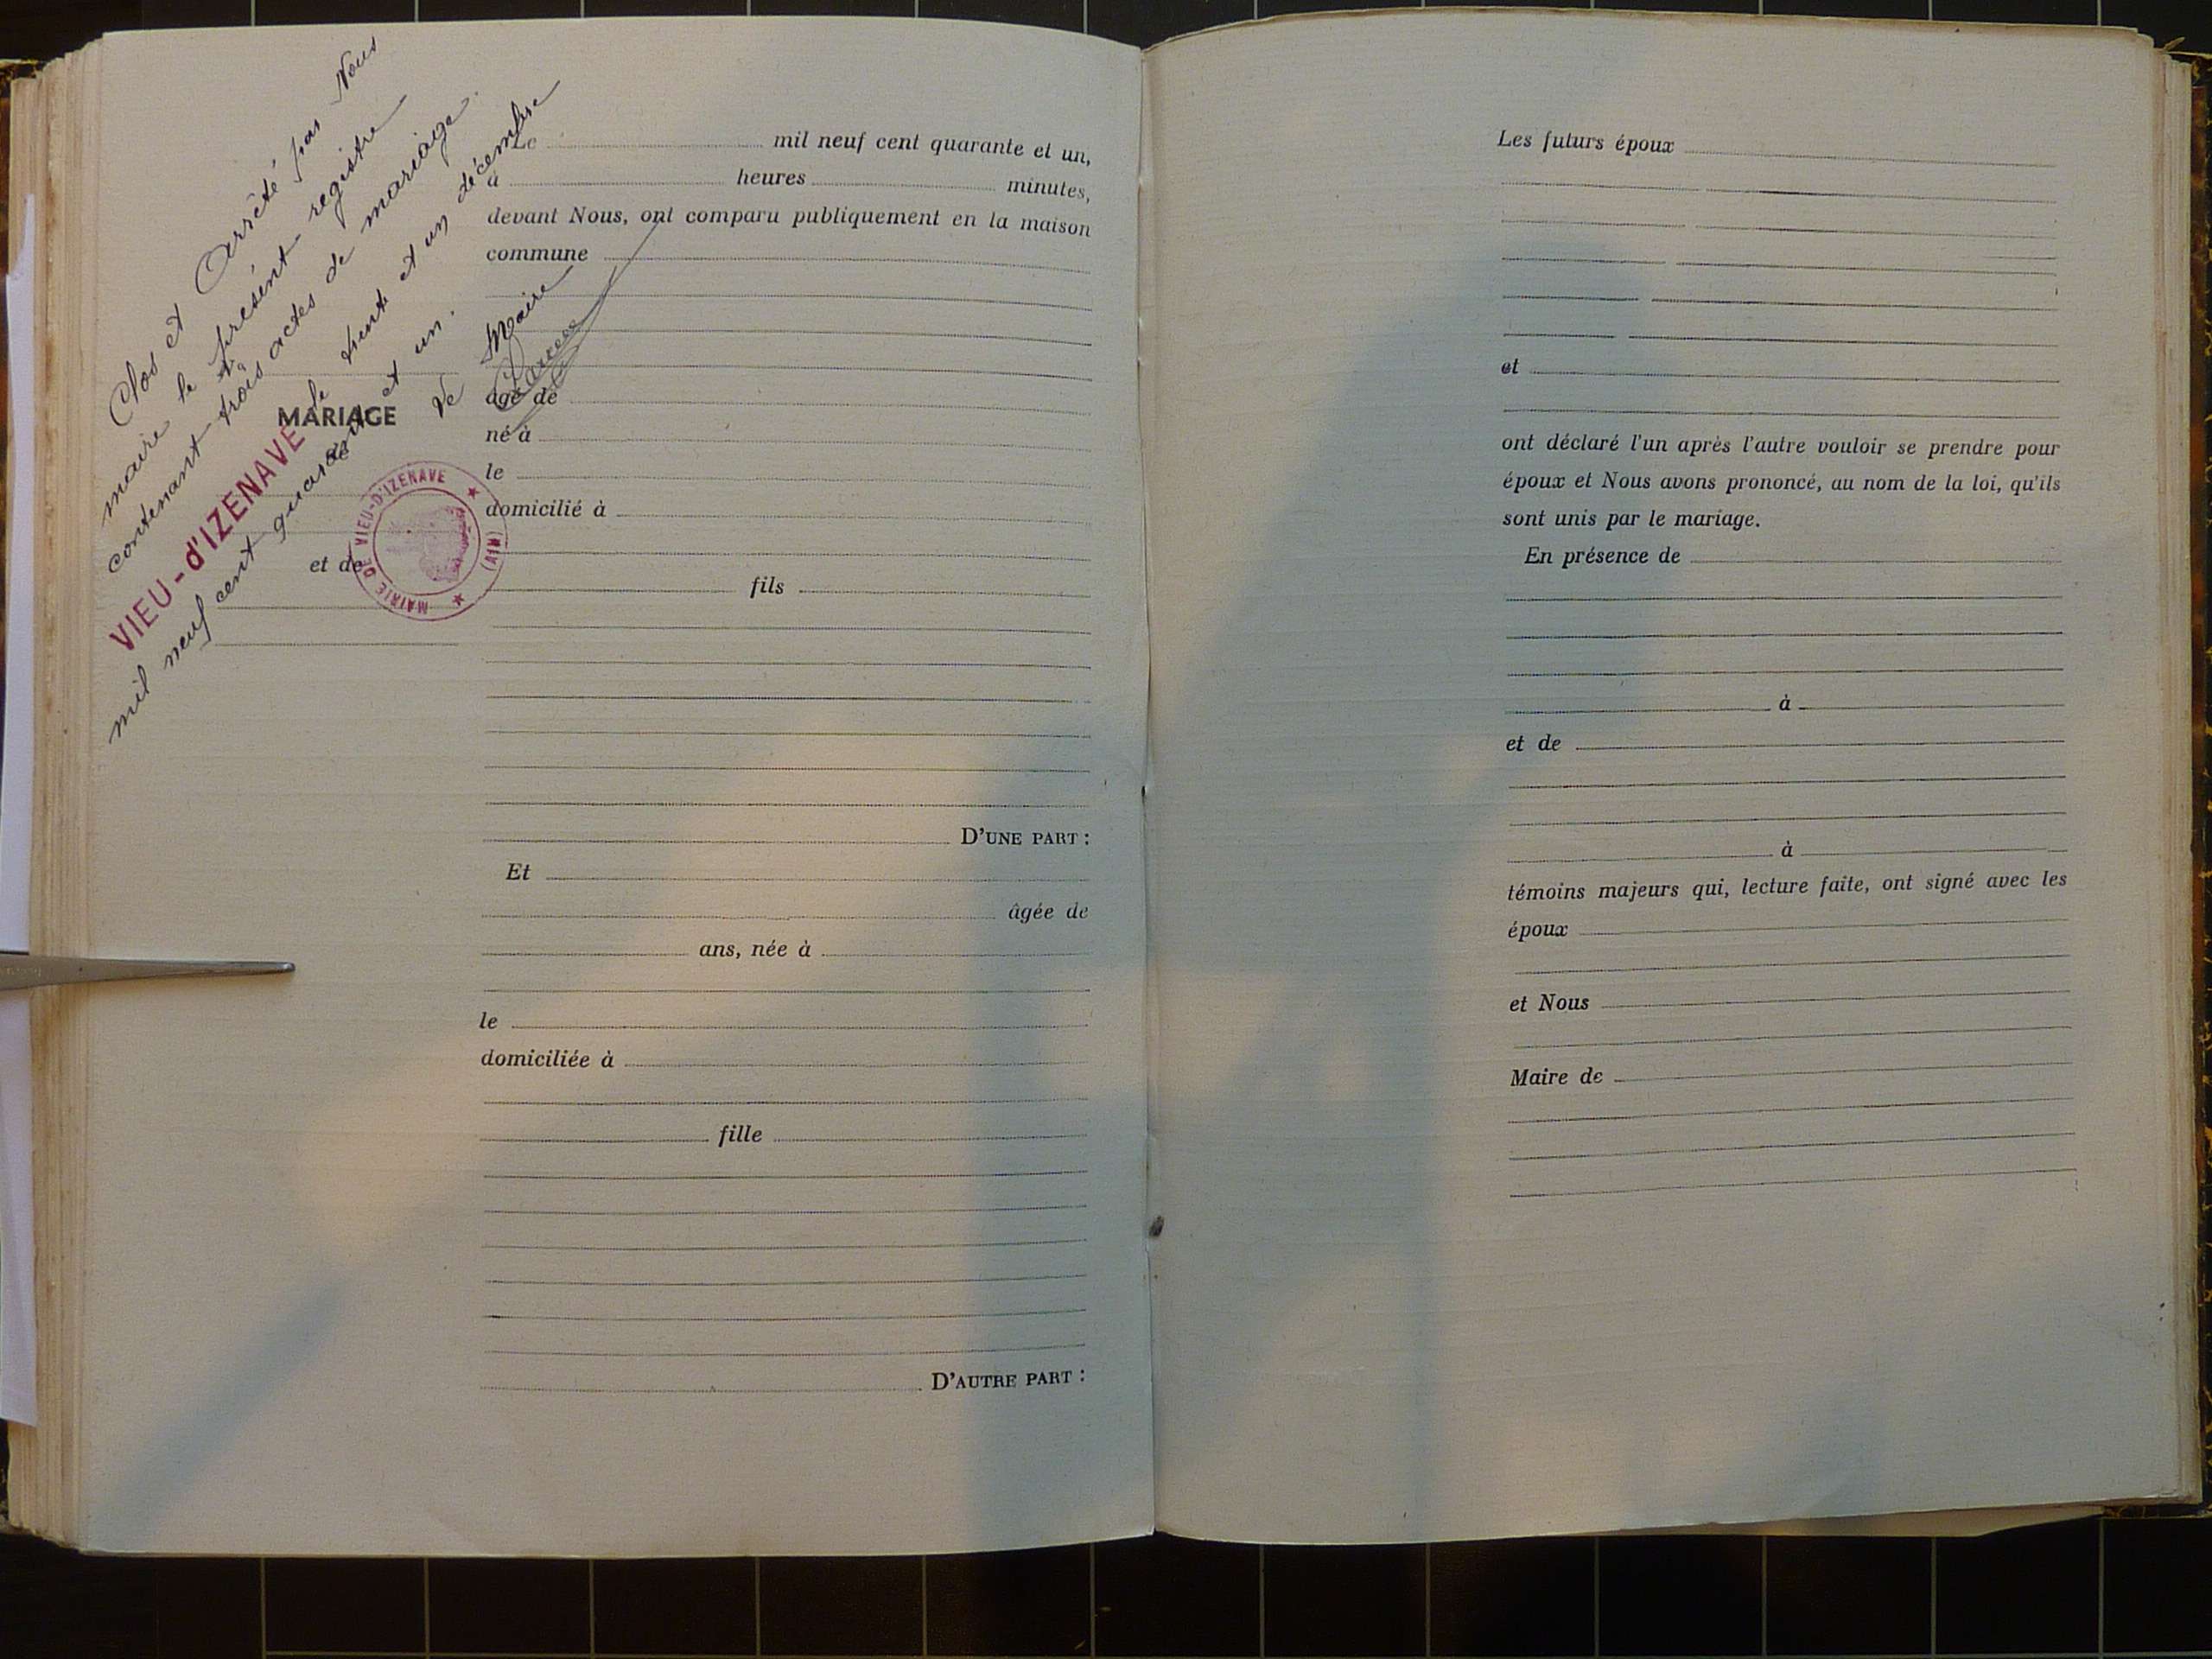 Clos et Arrêté par Nous
maire le présent registre
contenant trois actes de mariage.
VIEU-d'IZENAVE le trente et un décembre
mil neuf cent quarante et un.
Le Maire
MAIRIE DE VIEU-D'IZENAVE ★ (AIN) ★
MARIAGE
de
et de
Le mil neuf cent quarante et un,
à heures minutes,
devant Nous, ont comparu publiquement en la maison
commune
âgé de
né à
le
domicilié à
fils
D'UNE PART :
Et
âgée de
ans, née à
le
domiciliée à
fille
D'AUTRE PART :
Les futurs époux
et
ont déclaré l'un après l'autre vouloir se prendre pour
époux et Nous avons prononcé, au nom de la loi, qu'ils
sont unis par le mariage.
En présence de
à
et de
à
témoins majeurs qui, lecture faite, ont signé avec les
époux
et Nous
Maire de